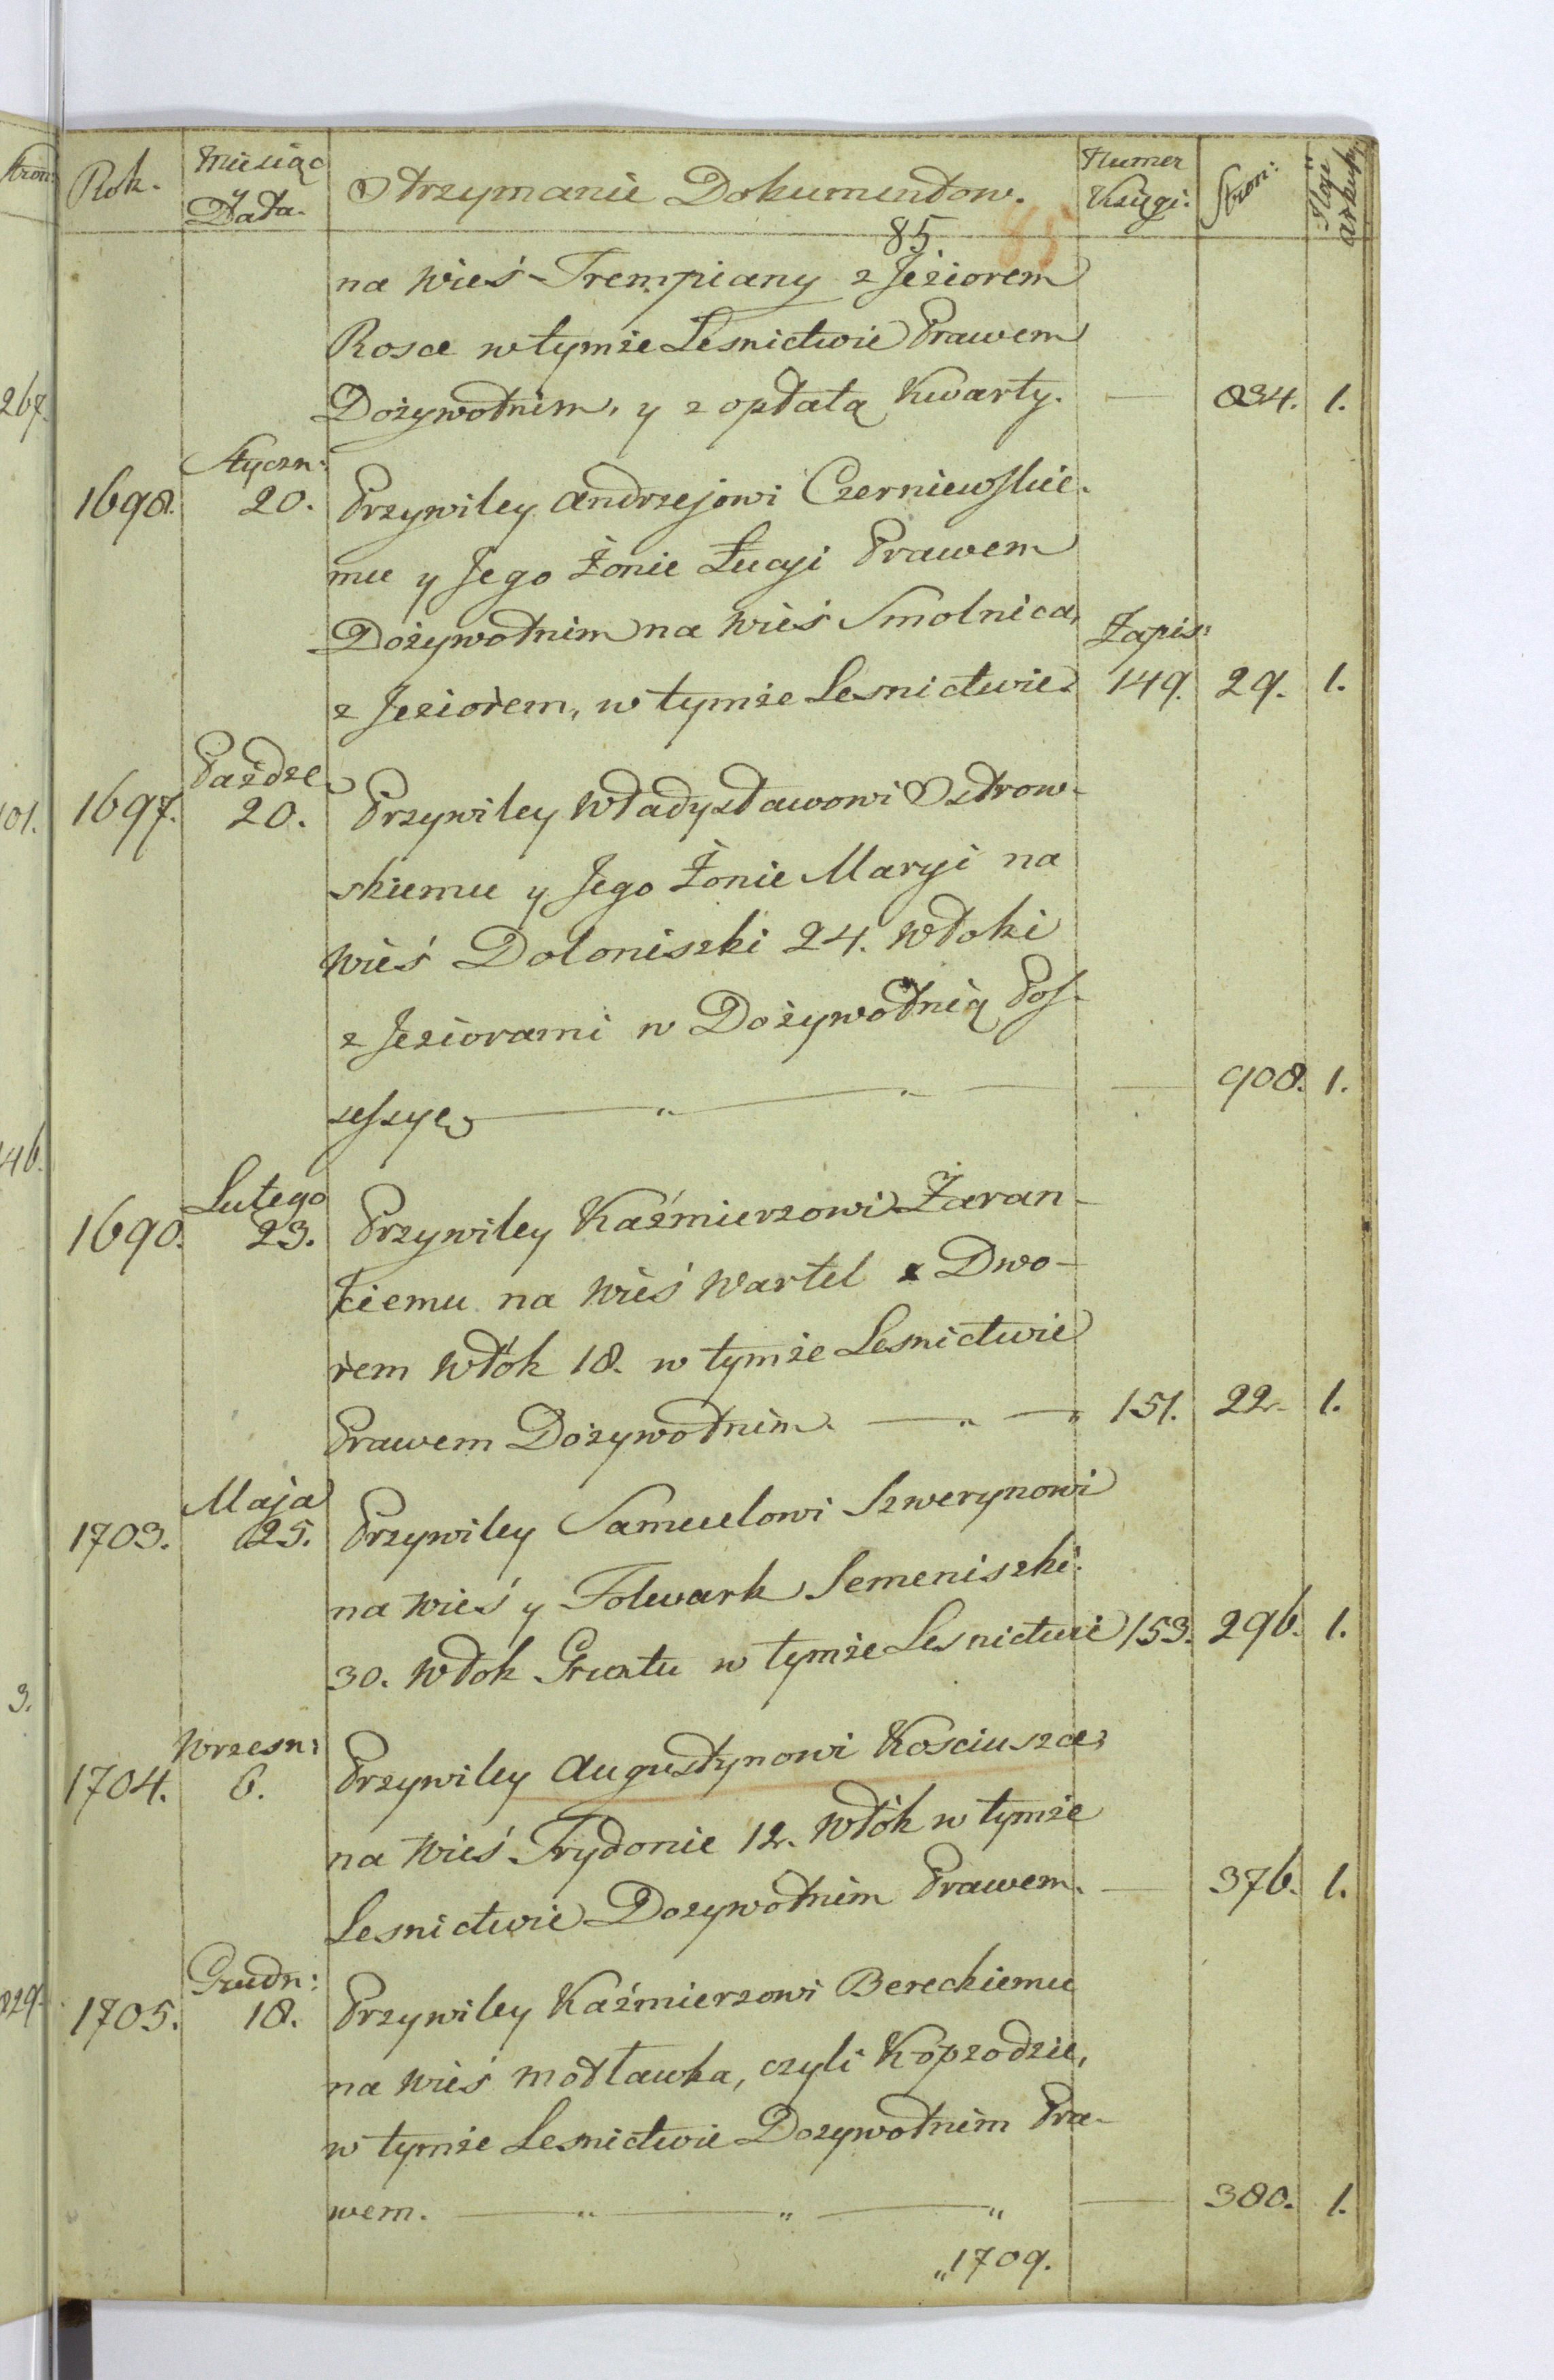 Rok. Miesiąc y Data. Otrzymanie Dokumentow. Numer Księgi: Stron: Ilość arkuszy
85
na Wieś Trempiany z Jeziorem
Rosce w tymże Lesnictwie Prawem
Dożywotnim, y z opłatą Kwarty. — 834. 1.
Styczn:
1698. 20. Przywiley Andrzejowi Czerniewskie-
mu y Jego Żonie Łucyi Prawem
Dożywotnim na Wieś Smolnica, Zapis:
z Jeziorem, w tymże Lesnictwie. 149. 29. 1.
Paźdze
1697. 20. Przywiley Władysławowi Ostrow-
skiemu y Jego Żonie Maryi na
Wieś Doloniszki 24. Włoki
z Jeziorami w Dożywotnią Pos-
sessyę — " — " — — 908. 1.
Lutego
1690. 23. Przywiley Kaźmierzowi Żaran-
kiemu na Wieś Wartel z Dwo-
rem Włók 18. w tymże Lesnictwie
Prawem Dożywotnim. — " — " 151. 22. 1.
Maja
1703. 25. Przywiley Samuelowi Szwerynowi
na Wieś y Folwark Semeniszki
30. Włok Grutu w tymże Lesnictwie 153. 296. 1.
Wrzesn:
1704. 6. Przywiley Augustynowi Kosciuszce,
na Wieś Trydonie 12. Włók w tymże
Lesnictwie Dozywotnim Prawem. — 376. 1.
Grudn:
1705. 18. Przywiley Kaźmierzowi Bereckiemu
na Wieś Motławka, czyli Kopzodzie,
w tymże Lesnictwie Dozywotnim Pra-
wem. — " — " — " — 380. 1.
"1709.